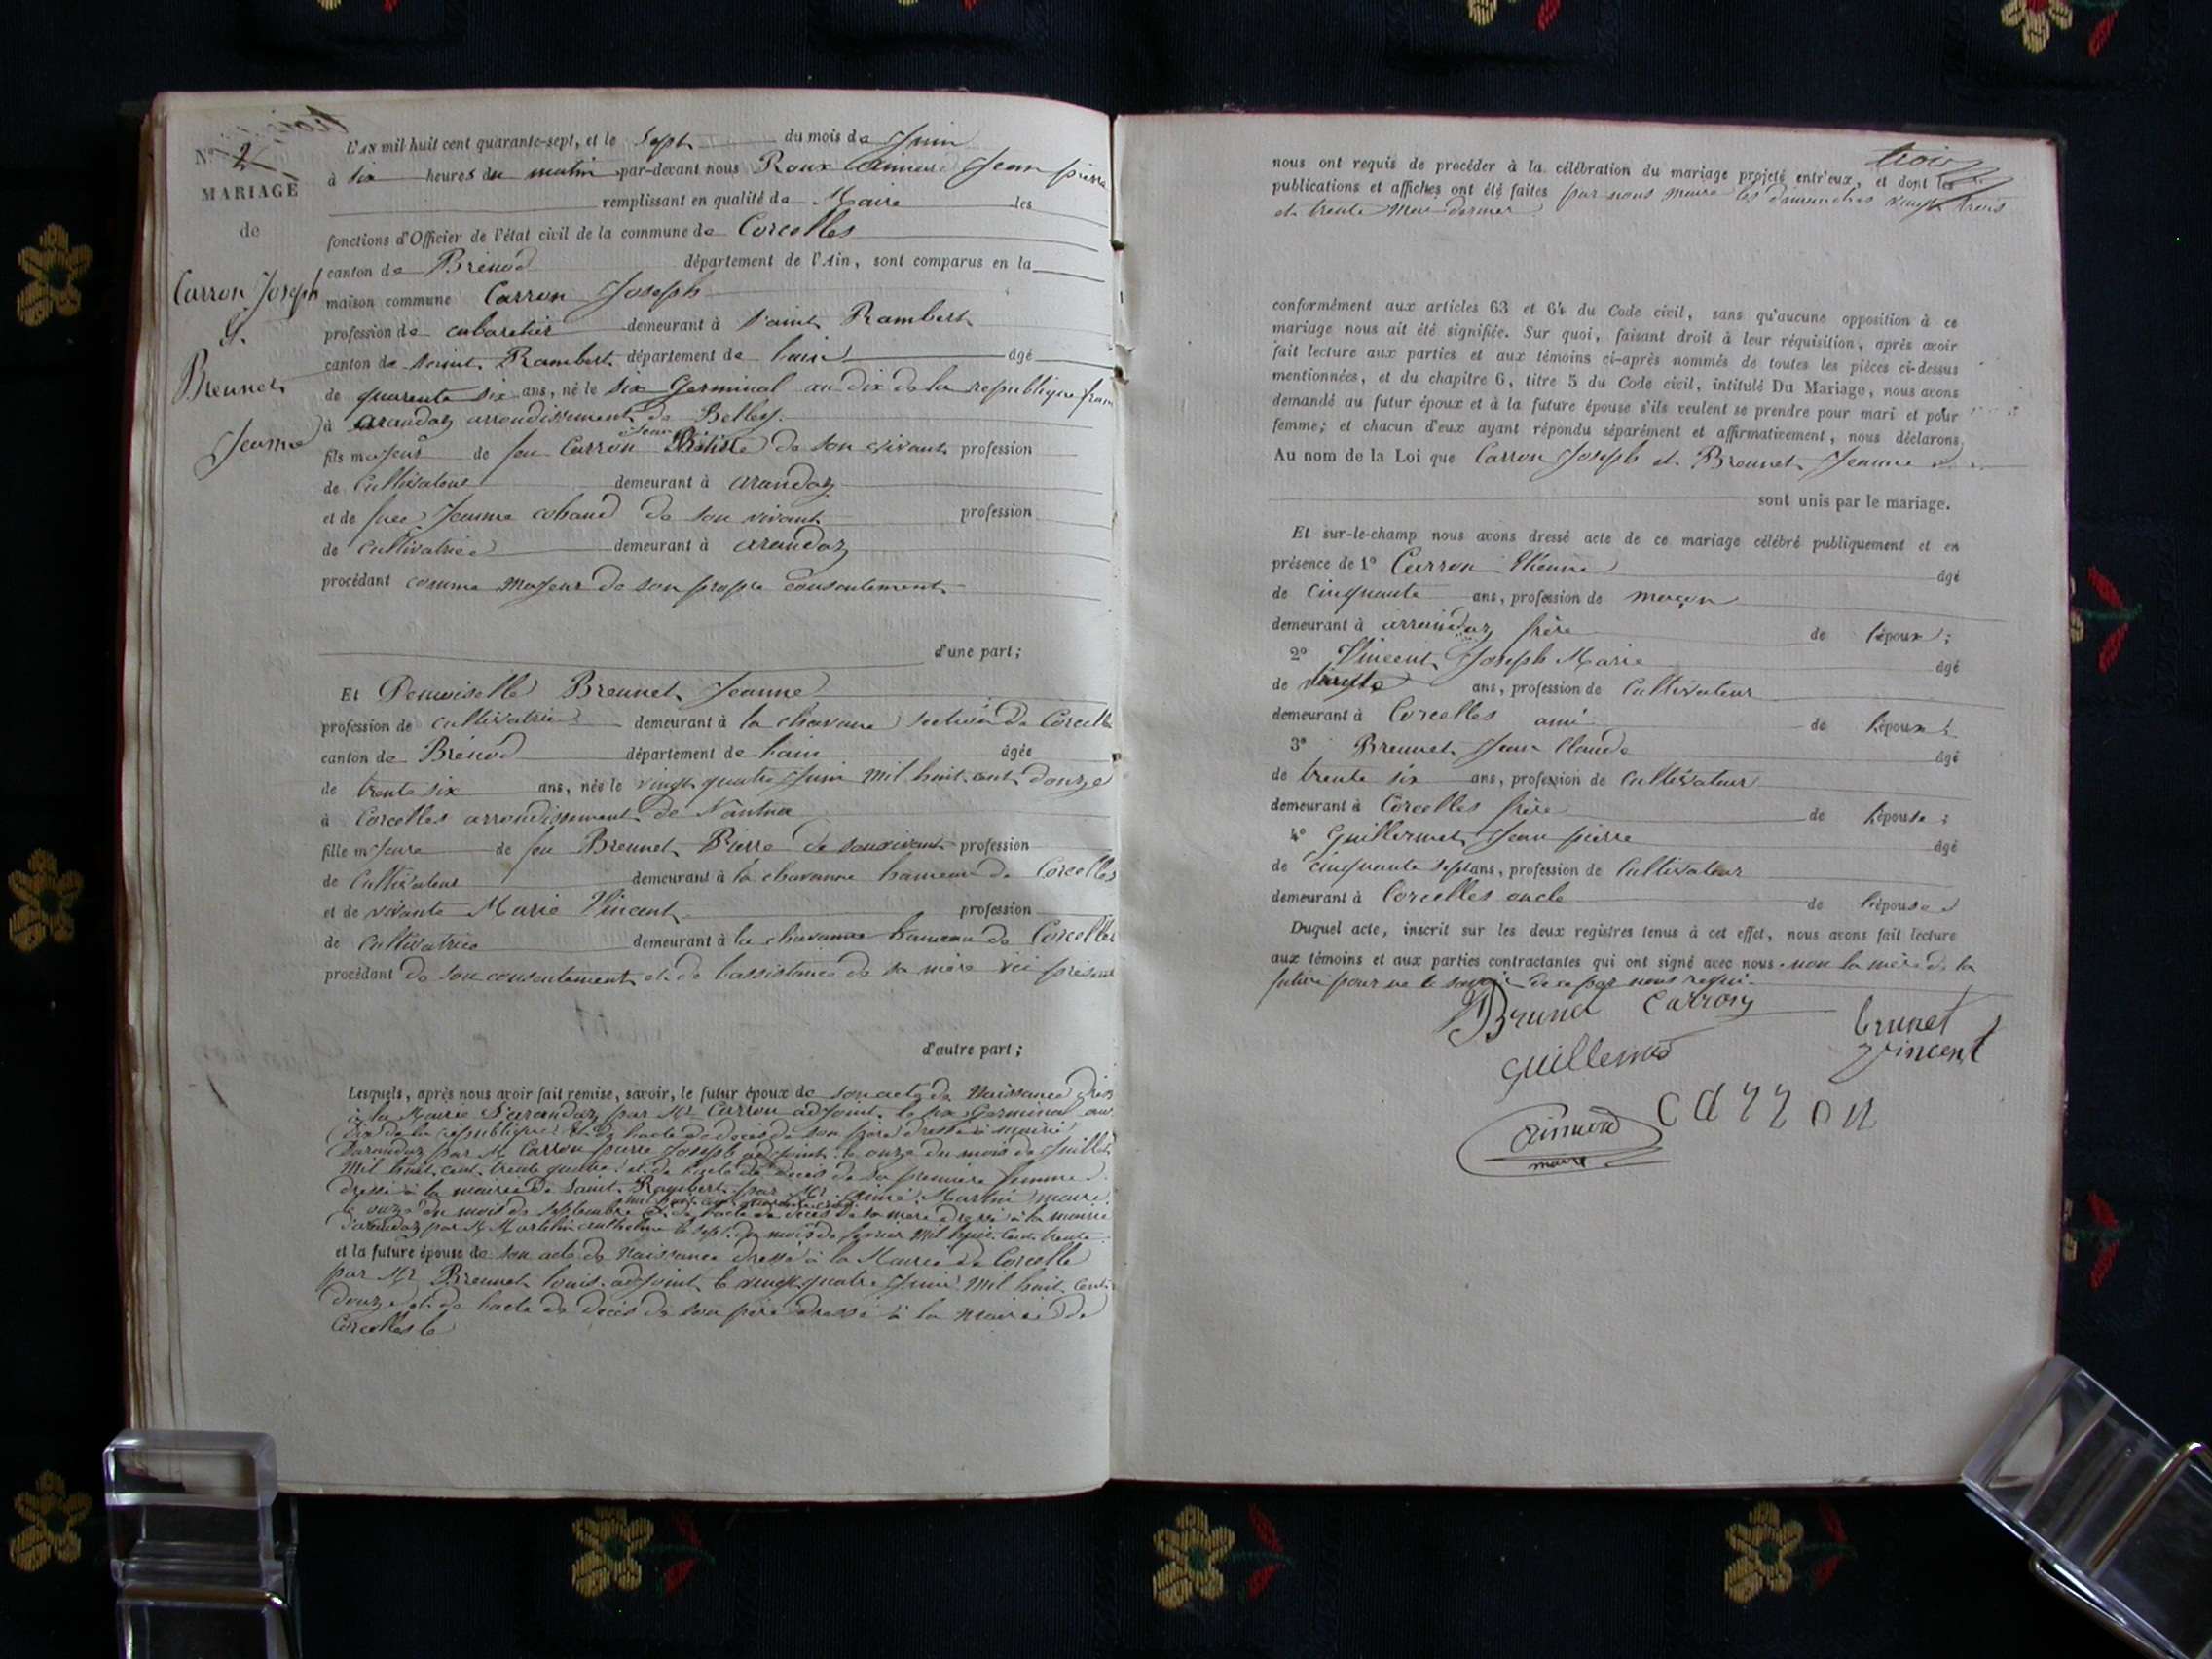 N° 2
MARIAGE
de
Carron Joseph
&
Breunet
Jeanne
L'AN mil huit cent quarante-sept, et le Sept du mois de Juin
à six heures du matin par-devant nous Roux Jean pierre
remplissant en qualité de Maire les
fonctions d'Officier de l'état civil de la commune de Corcelles
canton de Brénod département de l'Ain, sont comparus en la
maison commune Carron Joseph
profession de cabaretier demeurant à Saint Rambert
canton de saint Rambert département de lain âgé
de quarente six ans, né le six Germinal an dix de la republique fran
à arandaz arrondissement de Belley
fils majeur de feu Carron Jean Batiste de son vivant profession
de Cultivateur demeurant à arandaz
et de feue Jeanne cohand de son vivant profession
de cultivatrice demeurant à arandaz
procédant comme majeur de son propre consentement
d'une part;
Et Demoiselle Breunet Jeanne
profession de cultivatrice demeurant à la chavane section de Corcelle
canton de Brénod département de lain âgée
de trente six ans, née le vingt quatre Juin mil huit cent douze
à Corcelles arrondissement de Nantua
fille majeure de feu Breunet Pierre de son vivant profession
de Cultivateur demeurant à la chavanne hameau de Corcelles
et de vivante Marie Vincent profession
de Cultivatrice demeurant à la chavanne hameau de Corcelles
procédant de son consentement et de lassistance de sa mère ici présente
d'autre part;
Lesquels, après nous avoir fait remise, savoir, le futur époux de son acte de Naissance
à la Mairie d'arandaz par Mr Carron adjoint le six Germinal an
dix de la république et de lacte de décès de son père dressé à mairie
Darandaz par Mr Carron pierre Joseph adjoint le onze du mois de Juillet
Mil huit cent trente quatre et de lacte de décès de sa première femme
dressé à la mairie de Saint Rambert par Mr aimé Martin maire
le onze du mois de septembre et de lacte de décès de sa mère dressé à la mairie
darandaz par Mr le sept du mois de février Mil huit Cent trente
et la future épouse de son acte de Naissance dressé à la Mairie de Corcelle
par Mr Breunet louis adjoint le vingt quatre Juin Mil huit Cent
douze et de lacte de décès de son père dressé à la Mairie de
Corcelles le
trois
nous ont requis de procéder à la célébration du mariage projeté entr'eux, et dont les
publications et affiches ont été faites par nous maire les dimanches vingt trois
et trente Mai dernier
conformément aux articles 63 et 64 du Code civil, sans qu'aucune opposition à ce
mariage nous ait été signifiée. Sur quoi, faisant droit à leur réquisition, après avoir
fait lecture aux parties et aux témoins ci-après nommés de toutes les pièces ci-dessus
mentionnées, et du chapitre 6, titre 5 du Code civil, intitulé Du Mariage, nous avons
demandé au futur époux et à la future épouse s'ils veulent se prendre pour mari et pour
femme; et chacun d'eux ayant répondu séparément et affirmativement, nous déclarons
Au nom de la Loi que Carron Joseph et Breunet Jeanne
sont unis par le mariage.
Et sur-le-champ nous avons dressé acte de ce mariage célébré publiquement et en
présence de 1° Carron Etienne âgé
de Cinquante ans, profession de maçon
demeurant à arrandaz frère de l'époux;
2° Vincent Joseph Marie âgé
de ans, profession de Cultivateur
demeurant à Corcelles ami de lépoux;
3° Breunet Jean Claude âgé
de trente six ans, profession de Cultivateur
demeurant à Corcelles frère de lépouse;
4° Guillermet Jean pierre âgé
de cinquante sept ans, profession de Cultivateur
demeurant à Corcelles oncle de lépouse
Duquel acte, inscrit sur les deux registres tenus à cet effet, nous avons fait lecture
aux témoins et aux parties contractantes qui ont signé avec nous non la mère de la
future pour ne le savoir de ce par nous requi
Brunet Carron
brunet
vincent
guillermet
carron
maire